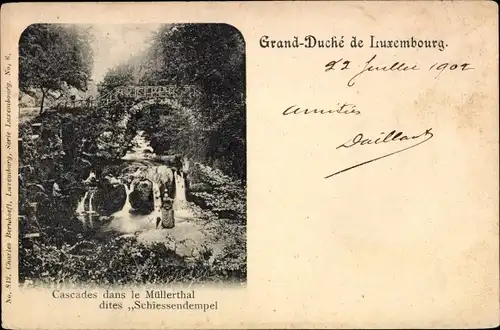 Grand-Duché de Luxembourg.
22 Juillet 1902
Amitiés
Daillart
No. 812. Charles Bernhoeft, Luxemburg, Serie Luxembourg. No. 6.
Cascades dans le Müllerthal
dites „Schiessendempel